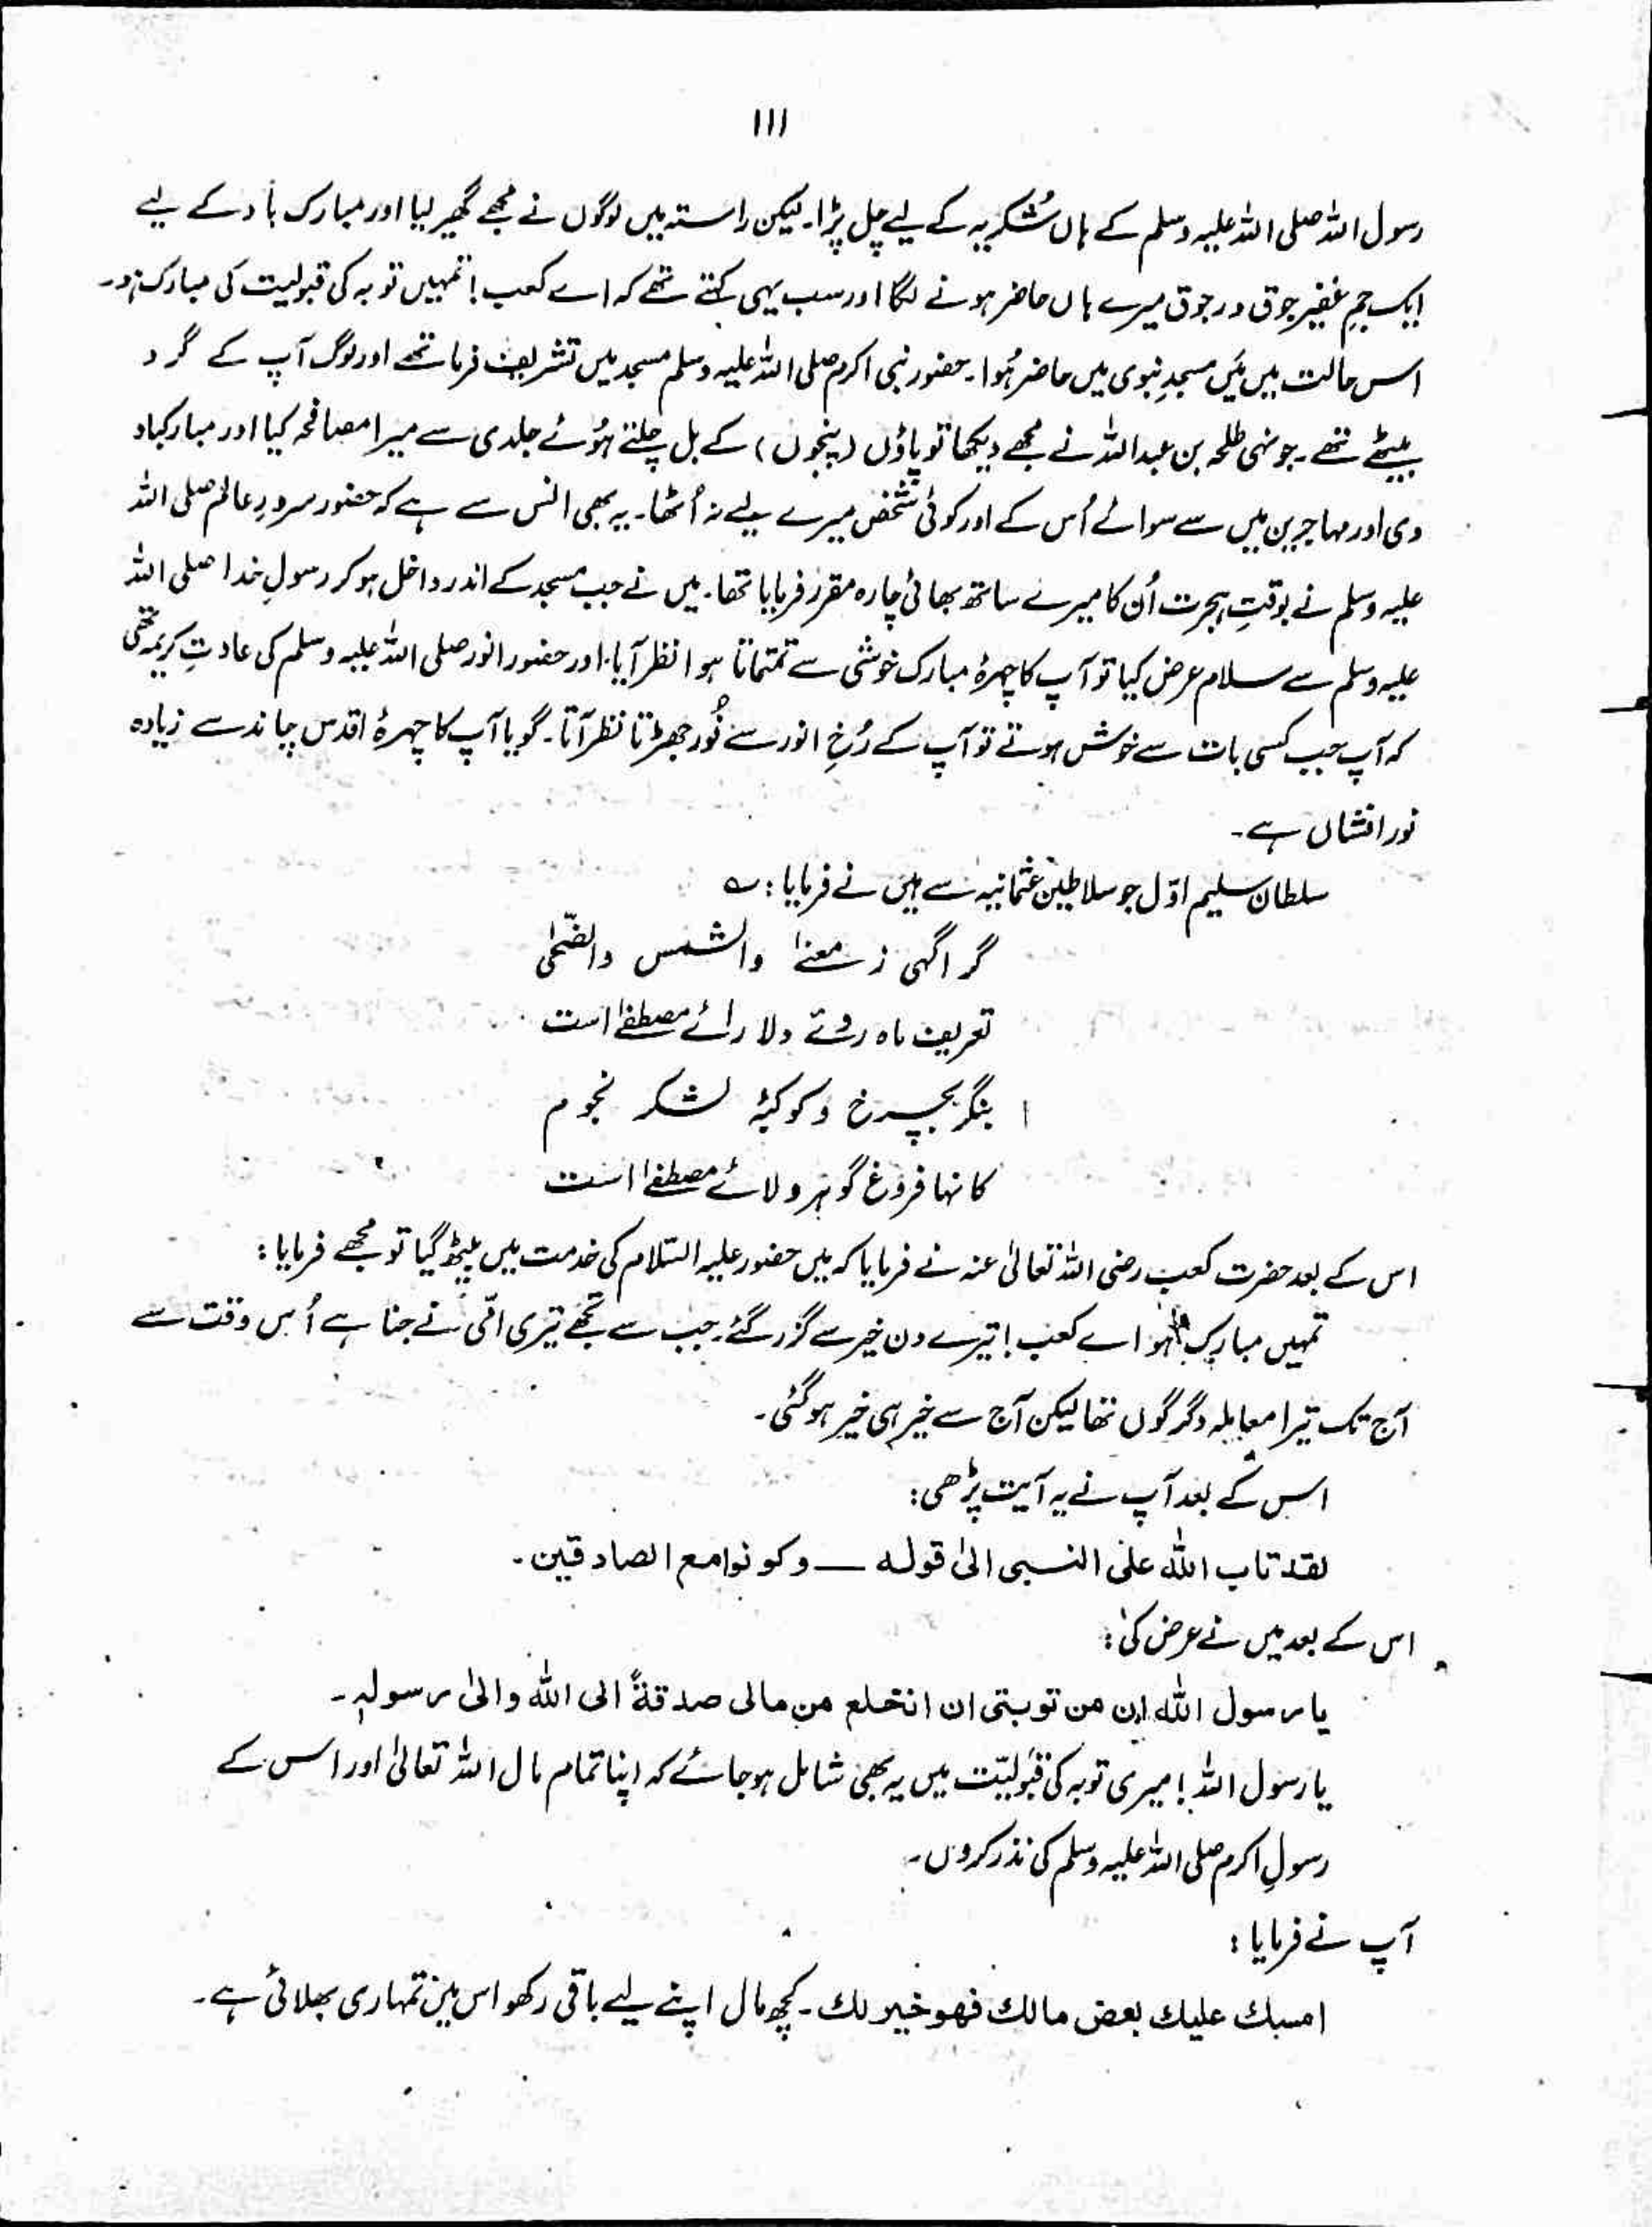 ۱۱۱
رسول اللہ صلی اللہ علیہ وسلم کے ہاں شُکریہ کے لیے چل پڑا۔ لیکن راستہ میں لوگوں نے مجھے گھیر لیا اور مبارک باد کے لیے
ایک جمِ غفیر جوق در جوق میرے ہاں حاضر ہونے لگا اور سب یہی کہتے تھے کہ اے کعب! تمہیں توبہ کی قبولیت کی مبارک ہو۔
اس حالت میں مَیں مسجدِ نبوی میں حاضر ہُوا۔ حضور نبی اکرم صلی اللہ علیہ وسلم مسجد میں تشریف فرما تھے اور لوگ آپ کے گرد
بیٹھے تھے۔ جونہی طلحہ بن عبداللہ نے مجھے دیکھا تو پاؤں (پنجوں) کے بل چلتے ہُوئے جلدی سے میرا مصافحہ کیا اور مبارکباد
دی اور مہاجرین میں سے سوائے اُس کے اور کوئی شخص میرے لیے نہ اُٹھا۔ یہ بھی انس سے ہے کہ حضور سرورِ عالم صلی اللہ
علیہ وسلم نے بوقتِ ہجرت اُن کا میرے ساتھ بھائی چارہ مقرر فرمایا تھا۔ میں نے جب مسجد کے اندر داخل ہو کر رسولِ خدا صلی اللہ
علیہ وسلم سے سلام عرض کیا تو آپ کا چہرۂ مبارک خوشی سے تمتماتا ہوا نظر آیا، اور حضور انور صلی اللہ علیہ وسلم کی عادتِ کریمہ تھی
کہ آپ جب کسی بات سے خوش ہوتے تو آپ کے رُخِ انور سے نُور جھڑتا نظر آتا۔ گویا آپ کا چہرۂ اقدس چاند سے زیادہ
نور افشاں ہے۔
سلطان سلیم اوّل جو سلاطین عثمانیہ سے ہیں نے فرمایا : ؎
گر آگہی ز معنیٰ والشمس والضّحٰی
تعریف ماہ روئے دلارائے مصطفےٰ است
بنگر بچرخ و کوکبۂ لشکر نجوم
کانہا فروغ گوہر ولائے مصطفےٰ است
اس کے بعد حضرت کعب رضی اللہ تعالیٰ عنہ نے فرمایا کہ میں حضور علیہ السّلام کی خدمت میں بیٹھ گیا تو مجھے فرمایا :
تمہیں مبارک ہو اے کعب! تیرے دن خیر سے گزر گئے۔ جب سے تجھے تیری امّی نے جنا ہے اُس وقت سے
آج تک تیرا معاملہ دگرگوں تھا لیکن آج سے خیر ہی خیر ہو گئی۔
اس کے بعد آپ نے یہ آیت پڑھی :
لقد تاب اللّٰہ علی النبی الیٰ قولہ — وکونوا مع الصادقین۔
اس کے بعد میں نے عرض کی :
یا رسول اللّٰہ ان من توبتی ان انخلع من مالی صدقۃً الی اللّٰہ والیٰ رسولہٖ۔
یا رسول اللہ! میری توبہ کی قبولیّت میں یہ بھی شامل ہو جائے کہ اپنا تمام مال اللہ تعالیٰ اور اس کے
رسولِ اکرم صلی اللہ علیہ وسلم کی نذر کروں۔
آپ نے فرمایا :
امسك عليك بعض مالك فهو خير لك۔ کچھ مال اپنے لیے باقی رکھو اس میں تمہاری بھلائی ہے۔